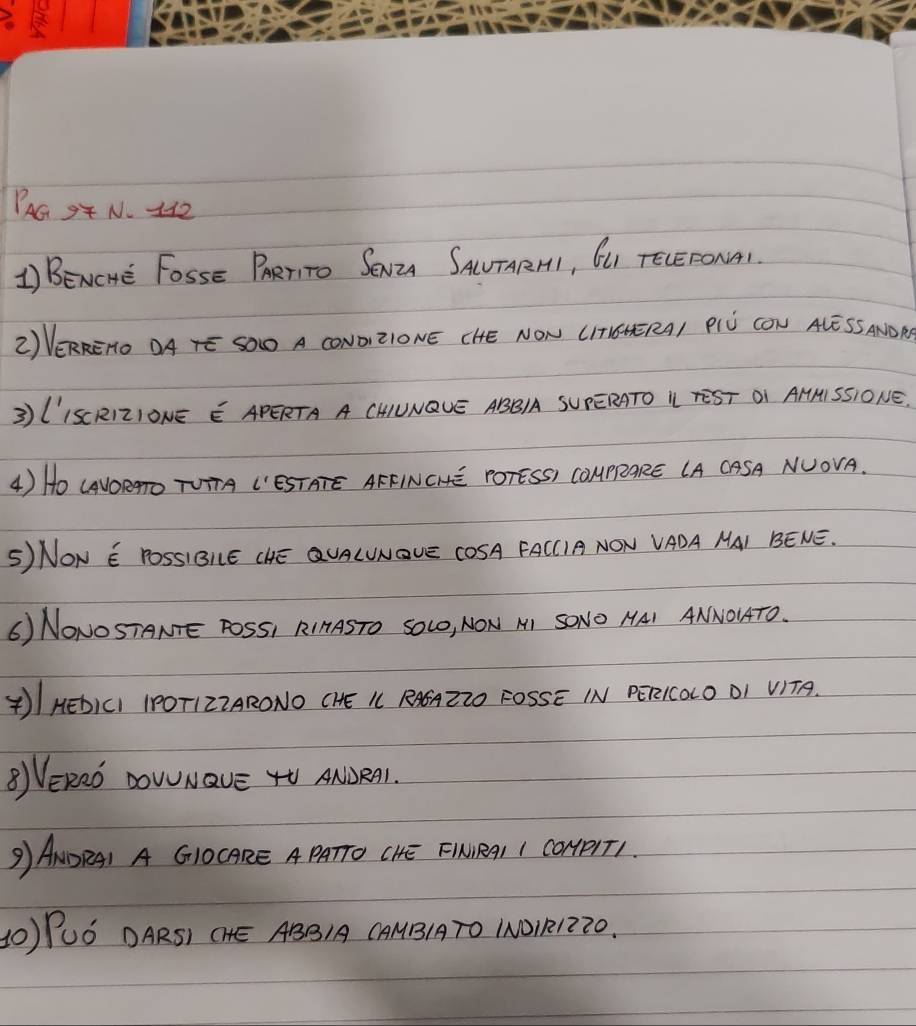 PAG 97 N. 112
1) BENCHÉ FOSSE PARTITO SENZA SALUTARMI, GLI TELEFONAI.
2) VERREMO DA TE SOLO A CONDIZIONE CHE NON LITIGHERAI PIÙ CON ALESSANDRA
3) L'ISCRIZIONE É APERTA A CHIUNQUE ABBIA SUPERATO IL TEST DI AMMISSIONE.
4) HO LAVORATO TUTTA L'ESTATE AFFINCHÉ POTESSI COMPRARE LA CASA NUOVA.
5) NON É POSSIBILE CHE QUALUNQUE COSA FACCIA NON VADA MAI BENE.
6) NONOSTANTE FOSSI RIMASTO SOLO, NON MI SONO MAI ANNOIATO.
7) I MEDICI IPOTIZZARONO CHE IL RAGAZZO FOSSE IN PERICOLO DI VITA.
8) VERRÓ DOVUNQUE TU ANDRAI.
9) ANDRAI A GIOCARE A PATTO CHE FINIRAI I COMPITI.
10) PUÓ DARSI CHE ABBIA CAMBIATO INDIRIZZO.